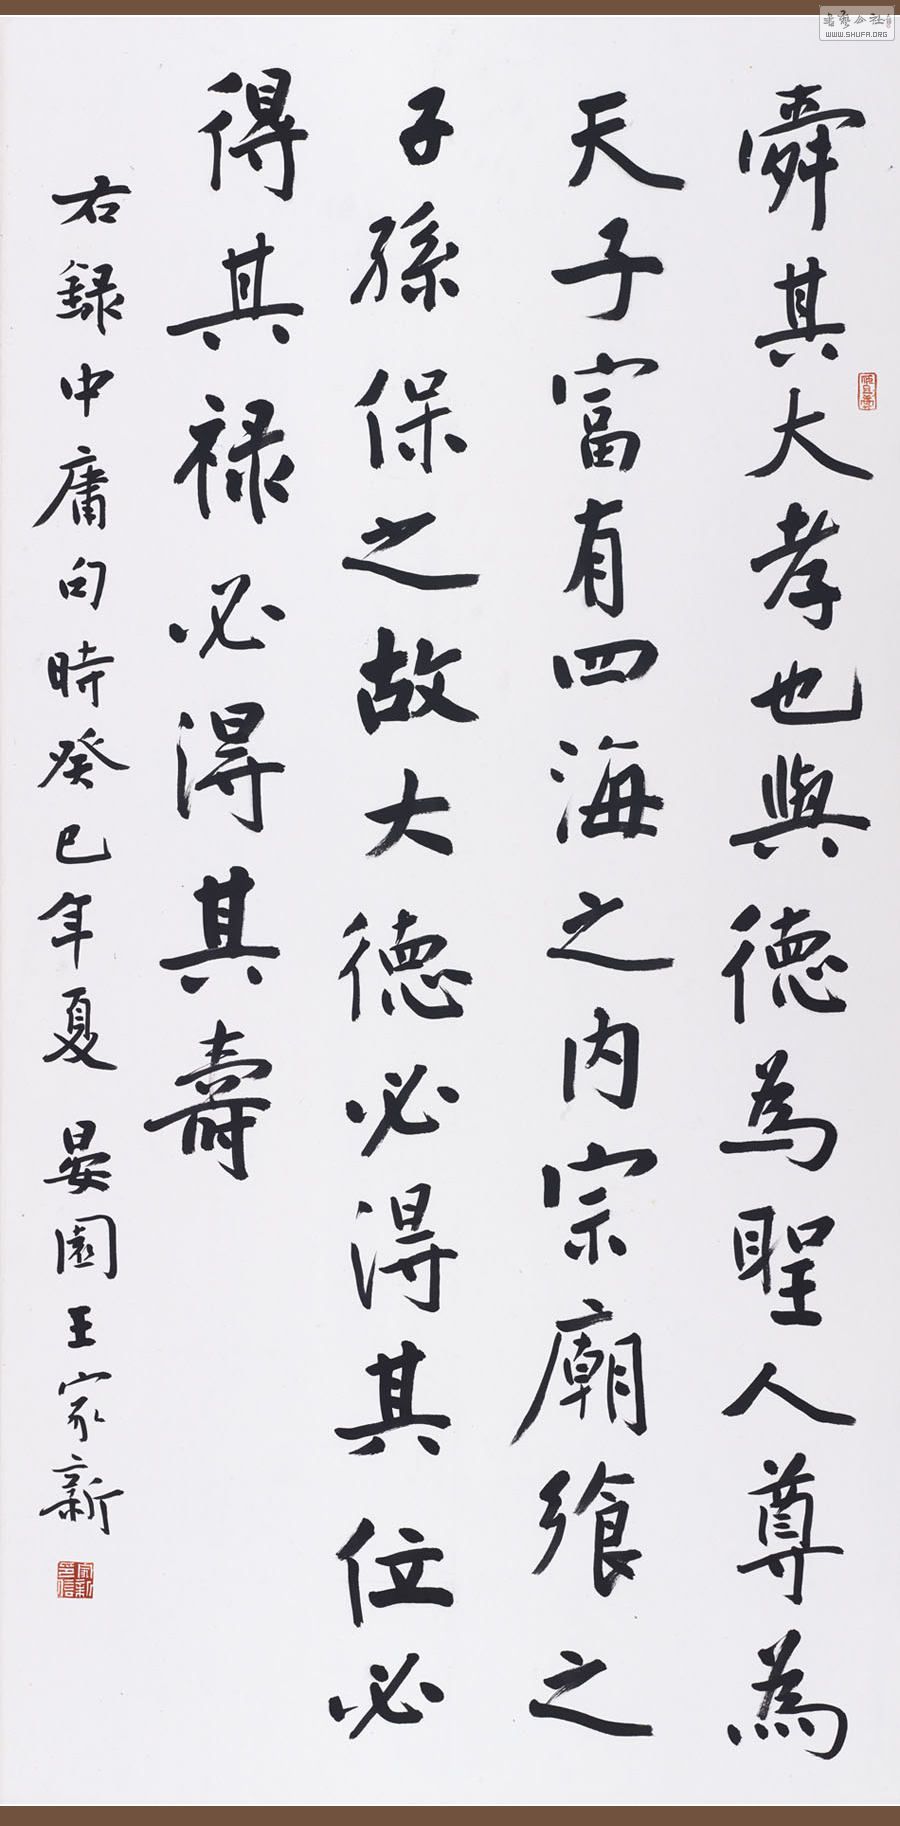 舜其大孝也與德為聖人尊為
天子富有四海之内宗廟飨之
子孫保之故大德必得其位必
得其禄必得其壽
右録中庸句時癸巳年夏 晏園王家新
家新印信
书艺公社
WWW.SHUFA.ORG